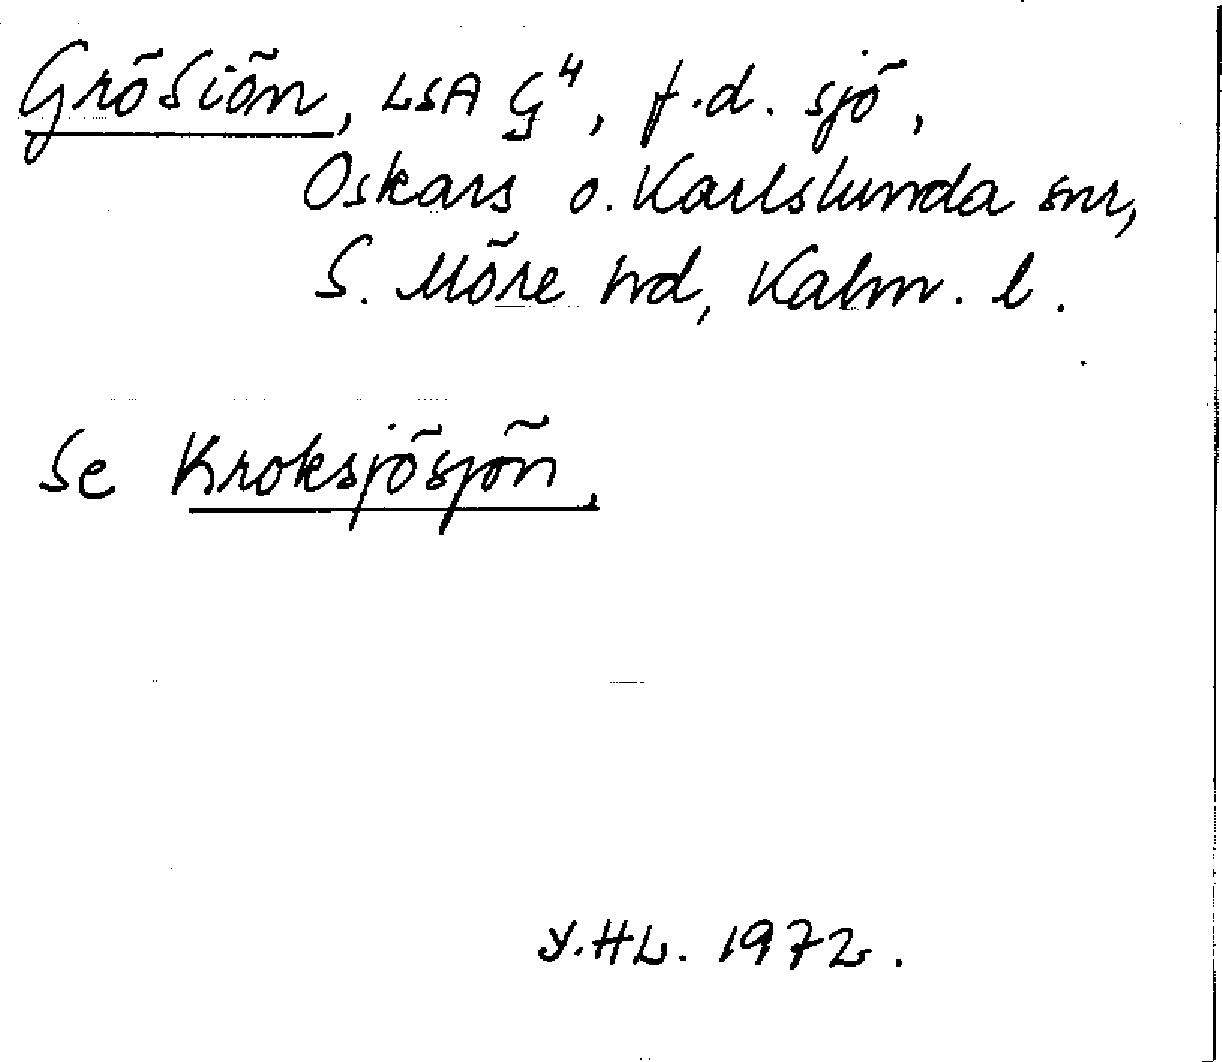 GröSiön, LSA G⁴, f.d. sjö,
Oskars o. Karlslunda snr,
S. Möre hd, Kalm. l.
Se Kroksjösjön.
Y.HL. 1972.